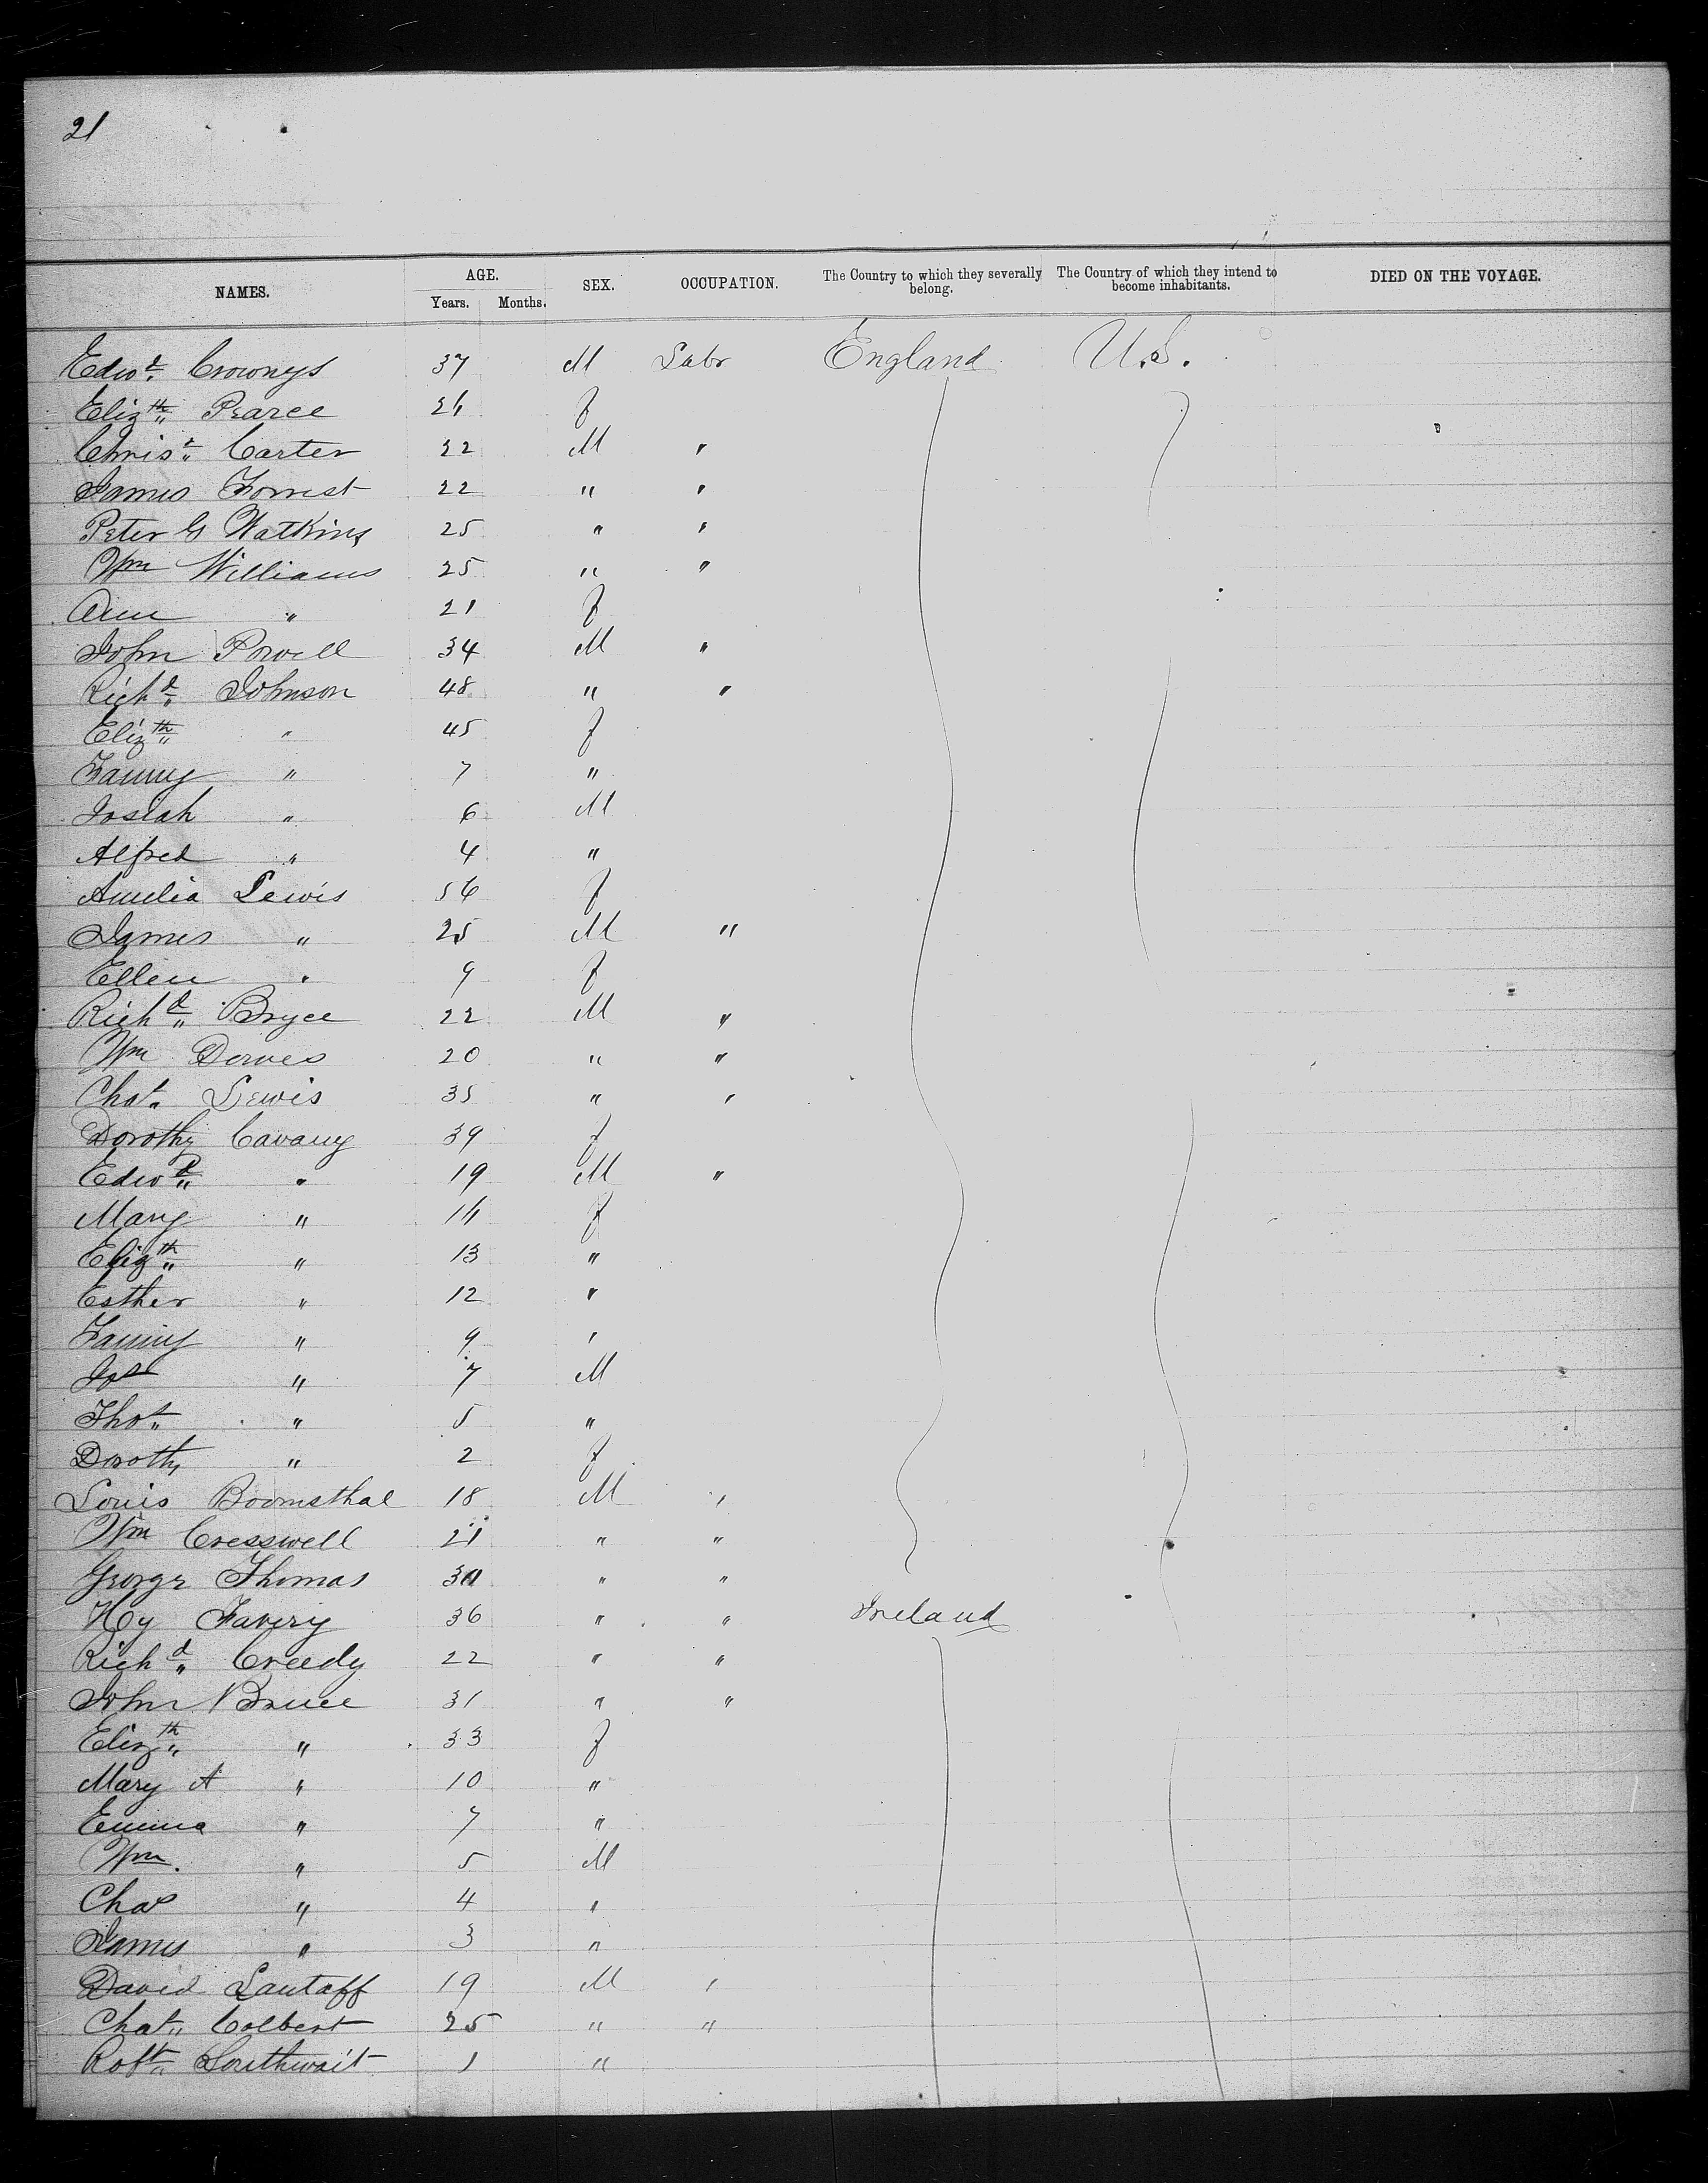 21
NAMES. AGE. Years. Months. SEX. OCCUPATION. The Country to which they severally belong. The Country of which they intend to become inhabitants. DIED ON THE VOYAGE.
Edwd. Crownys 37 M Labr England U.S.
Elizth Pearce 24 f
Christ Carter 22 M "
James Forrest 22 " "
Peter G Watkins 25 " "
Wm Williams 25 " "
Ann " 21 f
John Powell 34 M "
Richd Johnson 48 " "
Elizth " 45 f
Fanny " 7 "
Josiah " 6 M
Alfred " 4 "
Amelia Lewis 56 f
James " 25 M "
Ellen " 9 f
Richd Bryce 22 M "
Wm Dowes 20 " "
Chas Lewis 35 " "
Dorothy Cavany 39 f
Edwd " 19 M "
Mary " 14 f
Elizth " 13 "
Esther " 12 "
Fanny " 9 "
Jos " 7 M
Thos " 5 "
Dorothy " 2 f
Louis Boomsthal 18 M "
Wm Cresswell 21 " "
George Thomas 30 " "
Hy Favery 36 " " Ireland
Richd Creedy 22 " "
John Bruce 31 " "
Elizth " 33 f
Mary A " 10 "
Emma " 7 "
Wm. " 5 M
Chas " 4 "
James " 3 "
David Lautaff 19 M "
Chas Colbert 25 " "
Robt Southwait 1 "